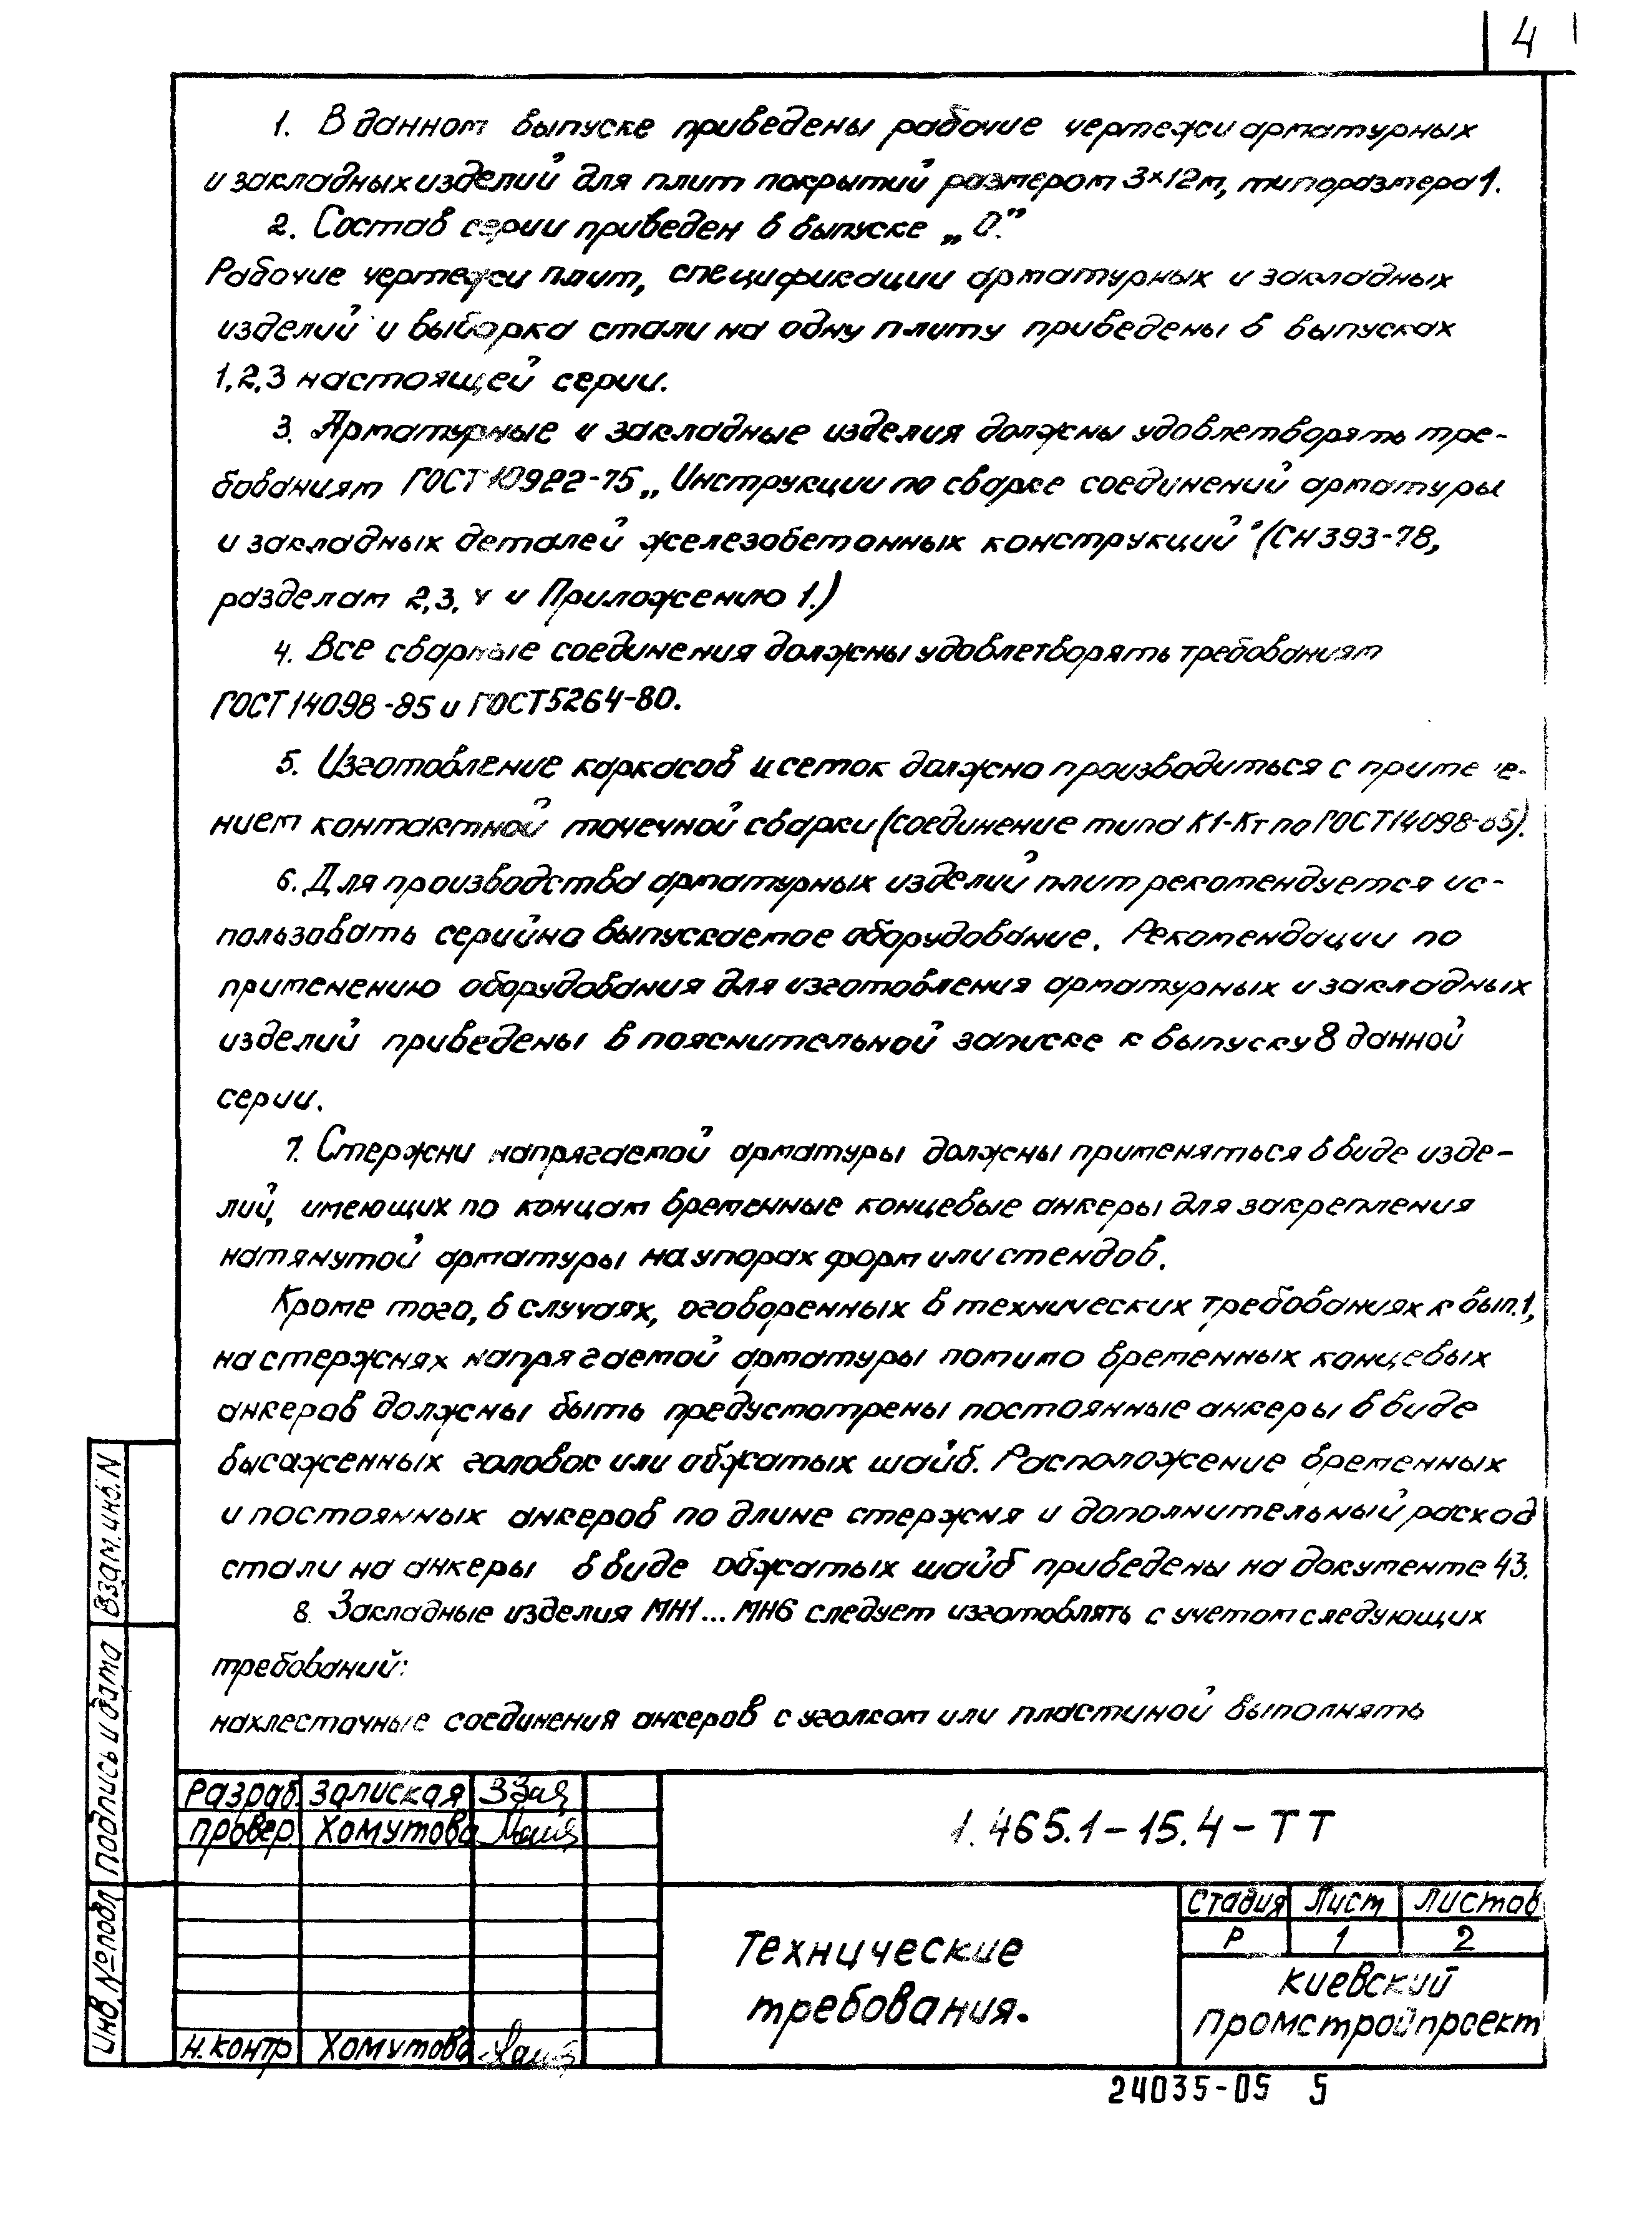 4
1. В данном выпуске приведены рабочие чертежи арматурных
и закладных изделий для плит покрытий размером 3×12м, типоразмера 1.
2. Состав серии приведен в выпуске „0".
Рабочие чертежи плит, спецификации арматурных и закладных
изделий и выборка стали на одну плиту приведены в выпусках
1,2,3 настоящей серии.
3. Арматурные и закладные изделия должны удовлетворять тре-
бованиям ГОСТ 10922-75 „Инструкции по сварке соединений арматуры
и закладных деталей железобетонных конструкций" (СН 393-78,
разделам 2,3, и Приложению 1.)
4. Все сварные соединения должны удовлетворять требованиям
ГОСТ 14098-85 и ГОСТ 5264-80.
5. Изготовление каркасов и сеток должно производиться с приме е-
нием контактной точечной сварки (соединение типа К1-Кт по ГОСТ 14098-85).
6. Для производства арматурных изделий плит рекомендуется ис-
пользовать серийно выпускаемое оборудование. Рекомендации по
применению оборудования для изготовления арматурных и закладных
изделий приведены в пояснительной записке к выпуску 8 данной
серии.
7. Стержни напрягаемой арматуры должны применяться в виде изде-
лий, имеющих по концам временные концевые анкеры для закрепления
натянутой арматуры на упорах форм или стендов.
Кроме того, в случаях, оговоренных в технических требованиях к вып.1,
на стержнях напрягаемой арматуры помимо временных концевых
анкеров должны быть предусмотрены постоянные анкеры в виде
высаженных головок или обжатых шайб. Расположение временных
и постоянных анкеров по длине стержня и дополнительный расход
стали на анкеры в виде обжатых шайб приведены на документе 43.
8. Закладные изделия МН1...МН6 следует изготовлять с учетом следующих
требований:
нахлесточные соединения анкеров с уголком или пластиной выполнять
Взам.инв.N
Подпись и дата
Инв.№подл
Разраб. Залиская
Провер. Хомутова
Н.контр Хомутова
1.465.1-15.4-ТТ
Технические
требования.
Стадия Лист Листов
Р 1 2
Киевский
Промстройпроект
24035-05 5